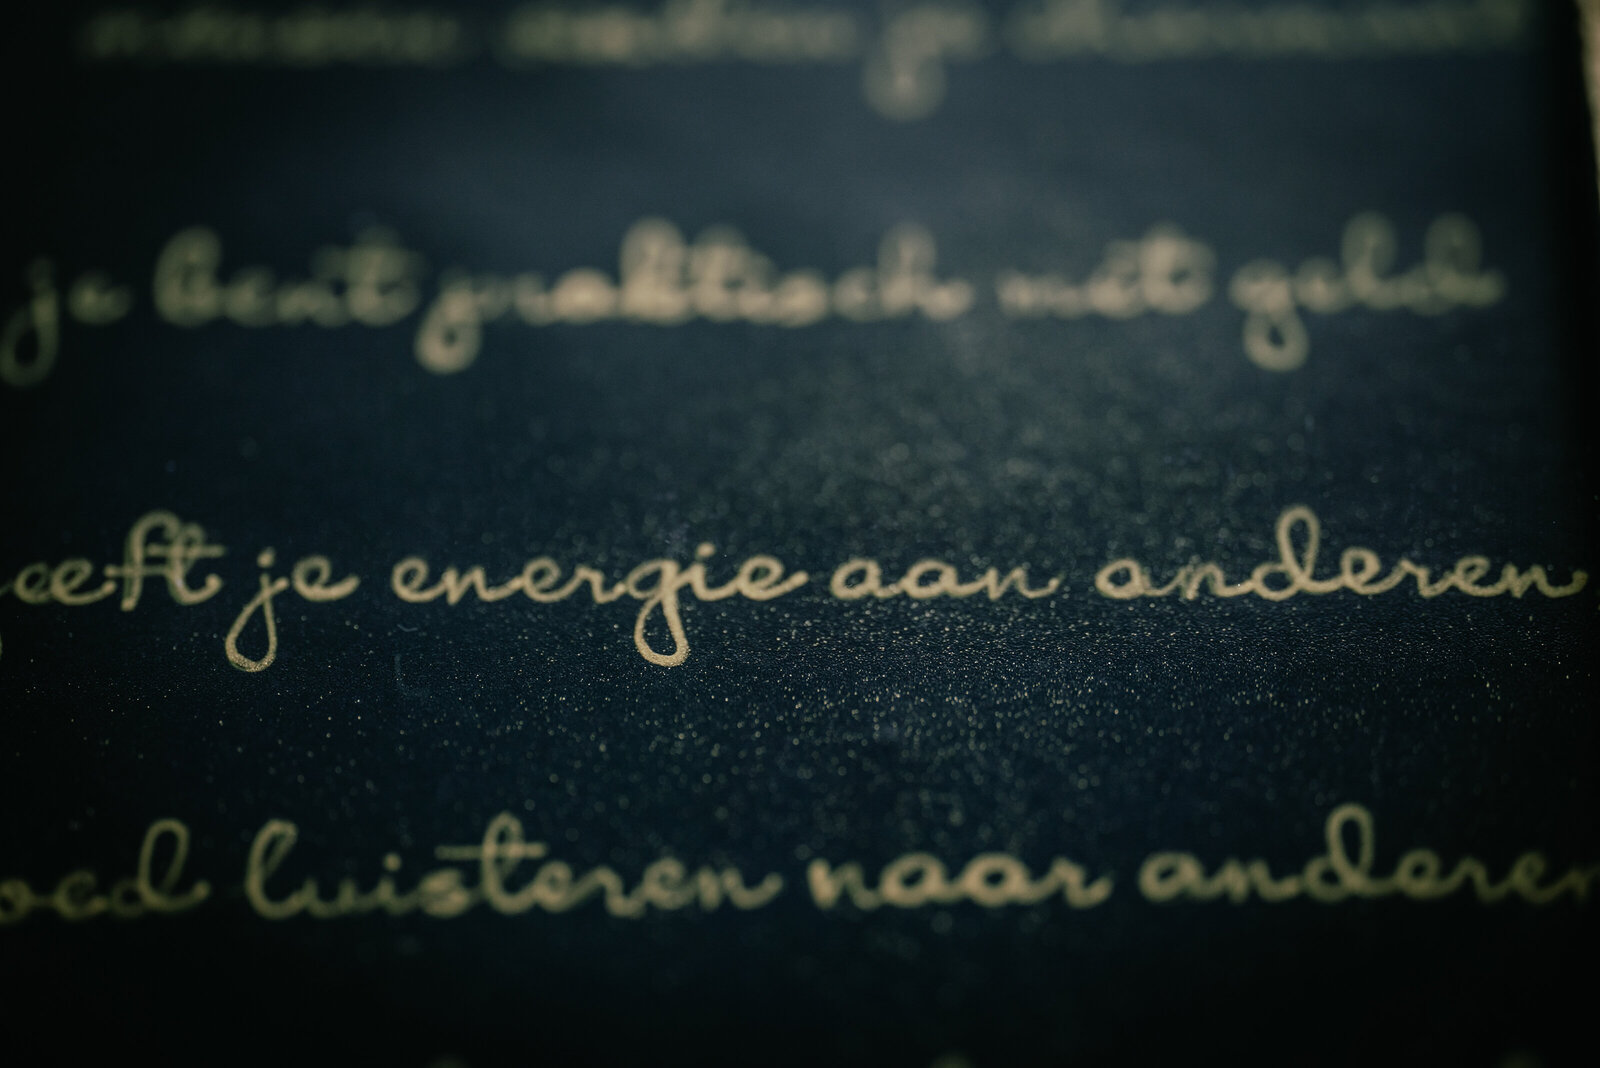 je bent praktisch met geld
eeft je energie aan anderen
oed luisteren naar anderen